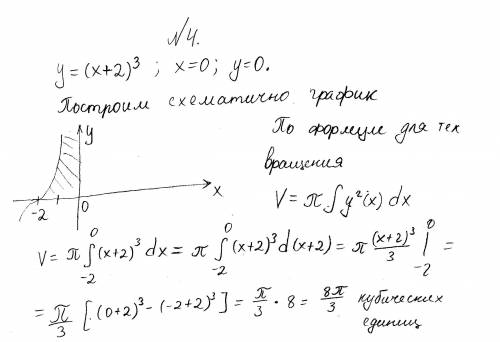 №4.
y=(x+2)³ ; x=0; y=0.
Построим схематично график
y
-2 0 x
По формуле для тех
вращения
V = π∫y²(x) dx
V = π ∫₋₂⁰ (x+2)³ dx = π ∫₋₂⁰ (x+2)³ d(x+2) = π (x+2)³/3 |₋₂⁰ =
= π/3 [(0+2)³ - (-2+2)³] = π/3 · 8 = 8π/3 кубических
единиц